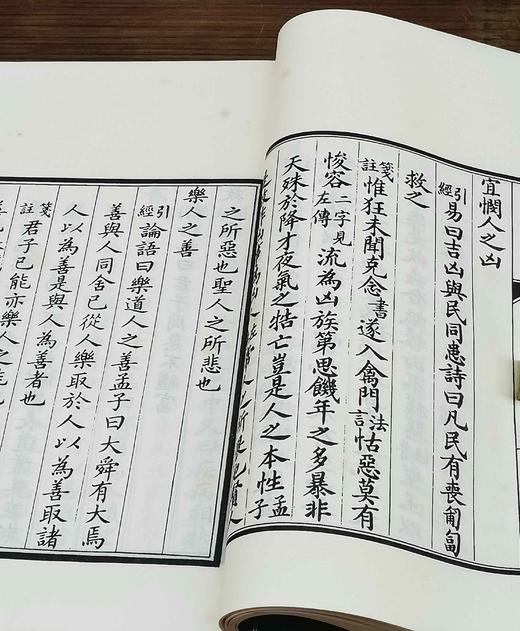 宜憫人之凶
引經易曰吉凶與民同患詩曰凡民有喪匍匐
救之
箋註惟狂未聞克念書遂入禽門法言怙惡莫有
悛容二字見左傳流為凶族第思饑年之多暴非
天殊於降才夜氣之牿亡豈是人之本性孟子
之所惡也聖人之所悲也
樂人之善
引經論語曰樂道人之善孟子曰大舜有大焉
善與人同舍已從人樂取於人以為善取諸
人以為善是與人為善者也
箋註君子已能亦樂人之能也